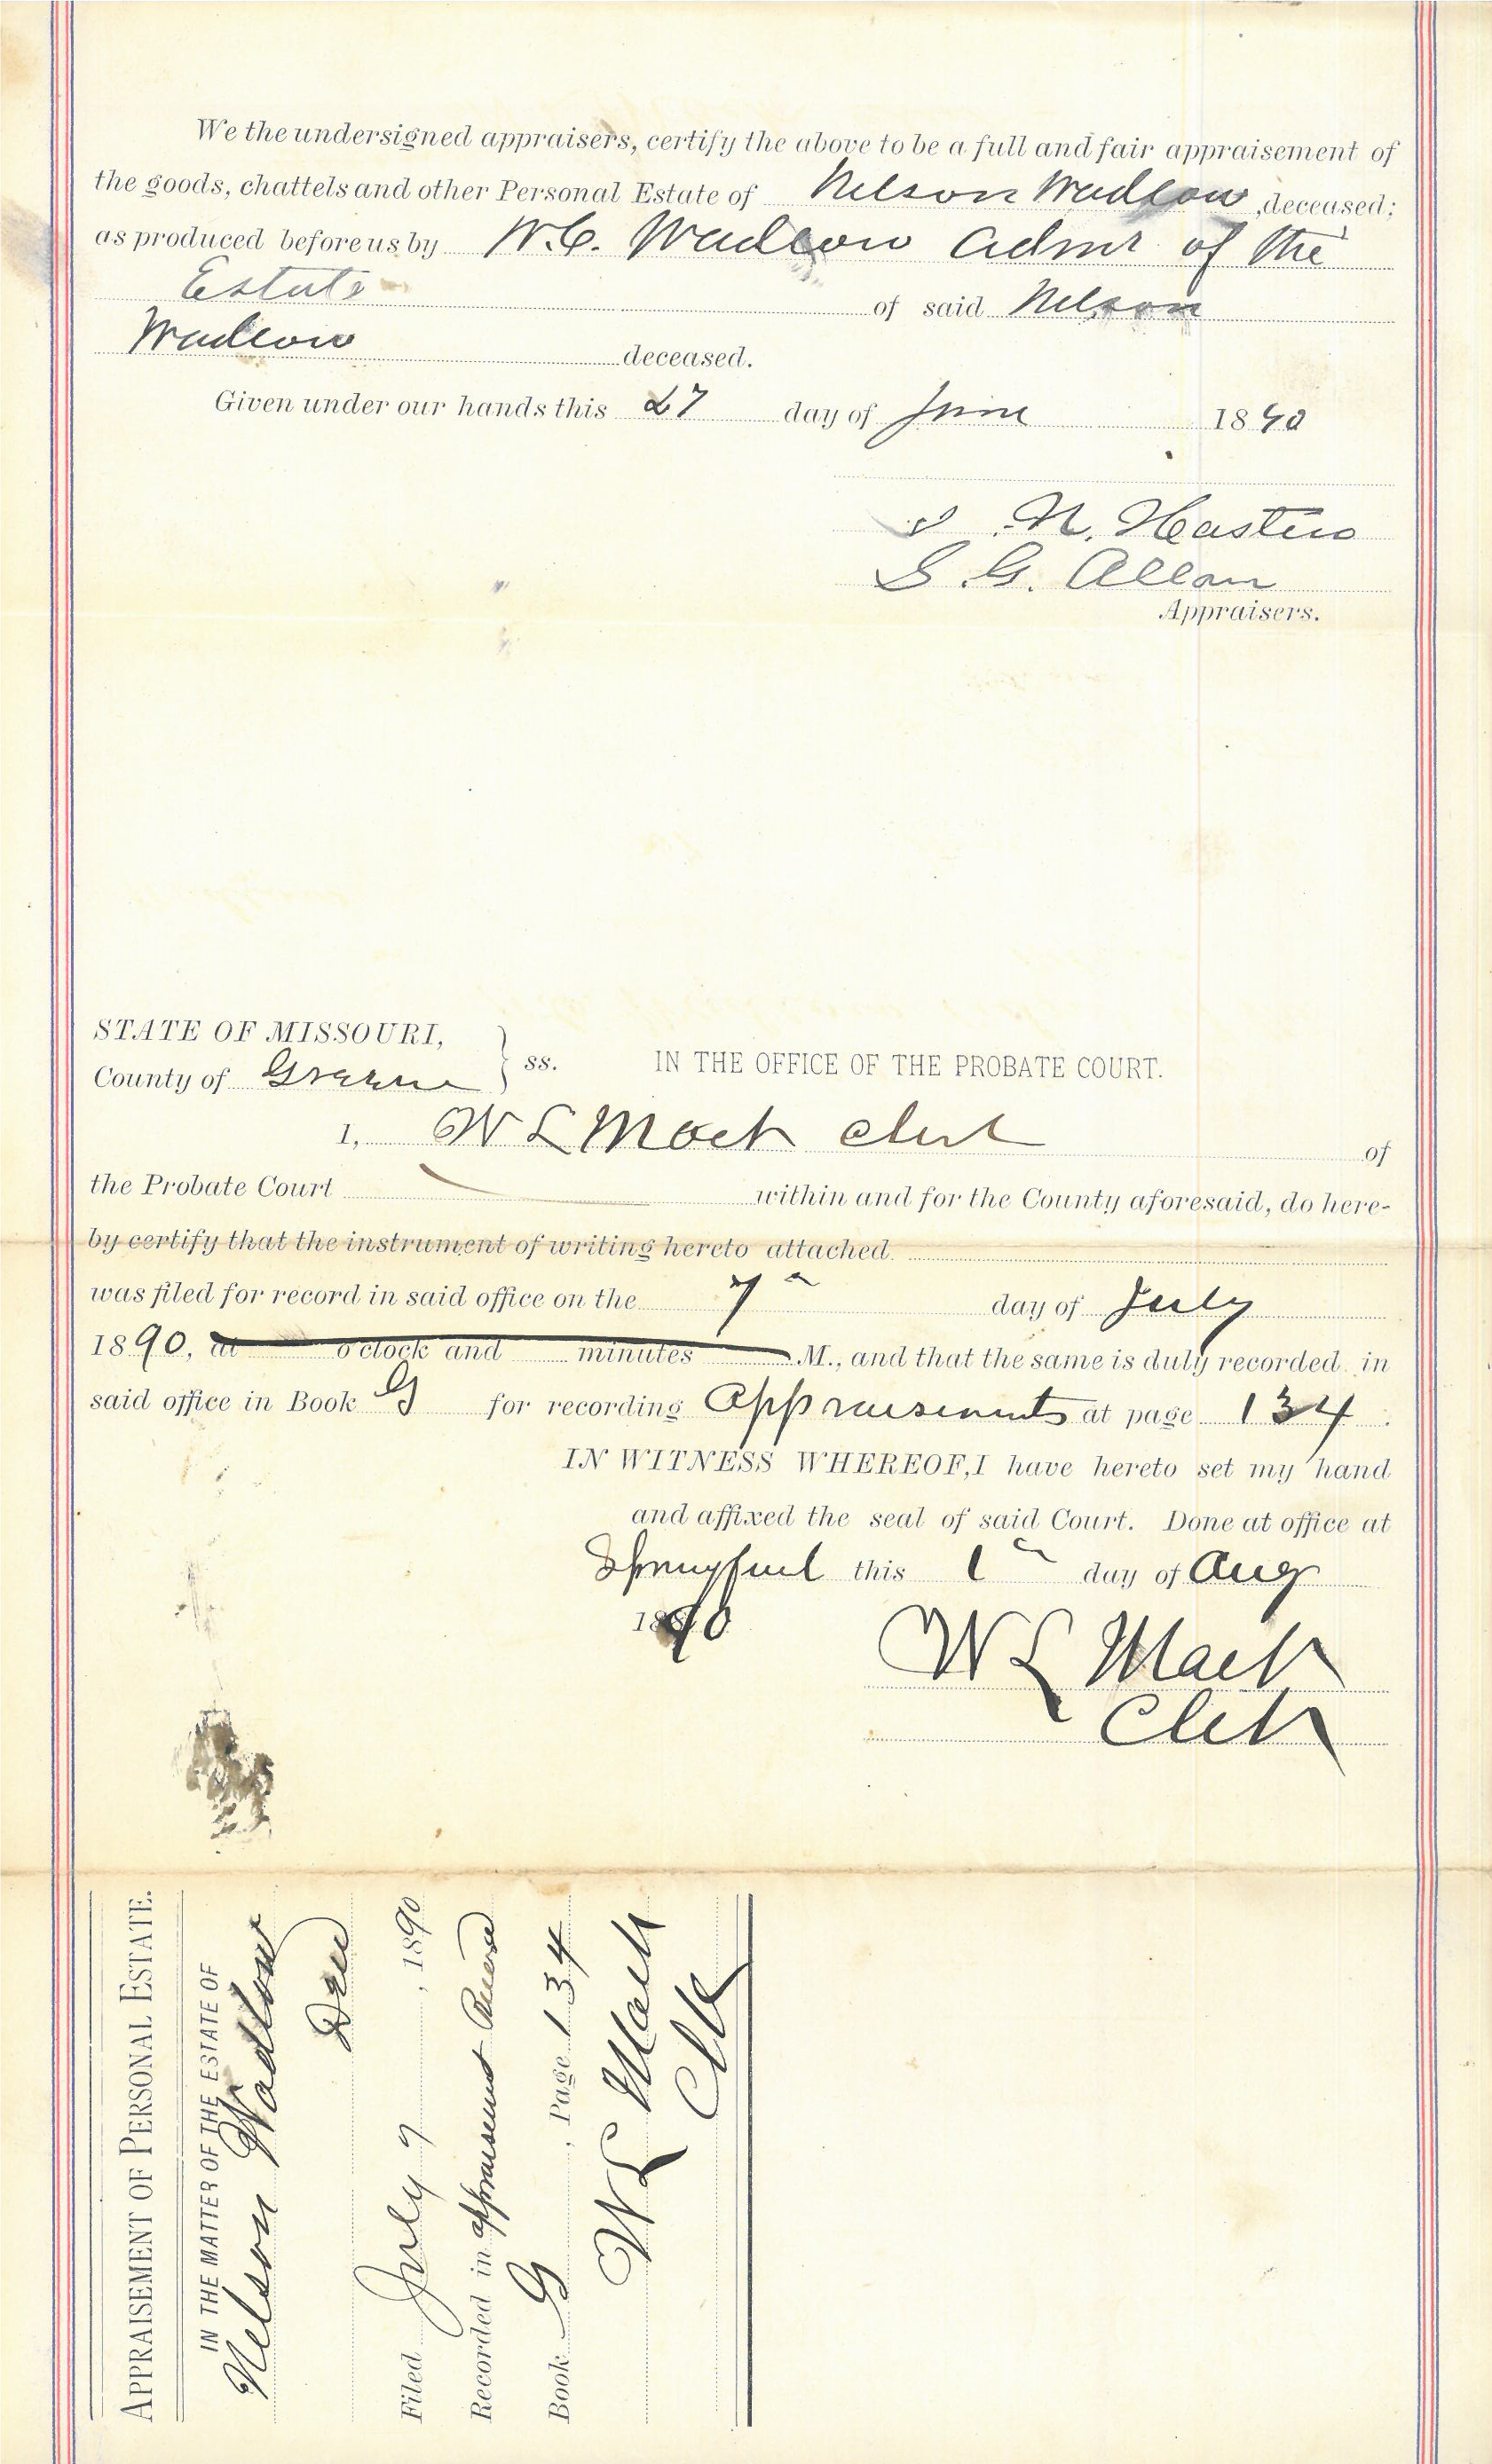 We the undersigned appraisers, certify the above to be a full and fair appraisement of
the goods, chattels and other Personal Estate of Nelson Wadlow, deceased;
as produced before us by W.C. Wadlow Admr of the
Estate of said Nelson
Wadlow deceased.
Given under our hands this 27 day of June 1890
N.
S. G. Allan
Appraisers.
STATE OF MISSOURI,
County of Greene } ss. IN THE OFFICE OF THE PROBATE COURT.
I, W L Mack Clerk of
the Probate Court within and for the County aforesaid, do here-
by certify that the instrument of writing hereto attached
was filed for record in said office on the 7" day of July
1890, at o'clock and minutes M., and that the same is duly recorded in
said office in Book G for recording Appraisements at page 134.
IN WITNESS WHEREOF, I have hereto set my hand
and affixed the seal of said Court. Done at office at
Springfield this 1" day of Aug
1890
W L Mack
Clerk
APPRAISEMENT OF PERSONAL ESTATE.
IN THE MATTER OF THE ESTATE OF
Nelson Wadlow
Filed July 7, 1890
Recorded in appraisement Record
Book G, Page 134
W L Mack
Clk